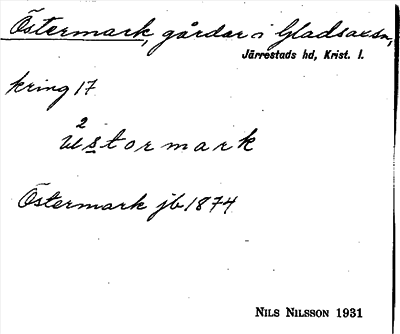 Östermark, gårdar i Gladsaxsn,
Järrestads hd, Krist. l.
kring 17
2
ústormark
Östermark jb 1874
NILS NILSSON 1931